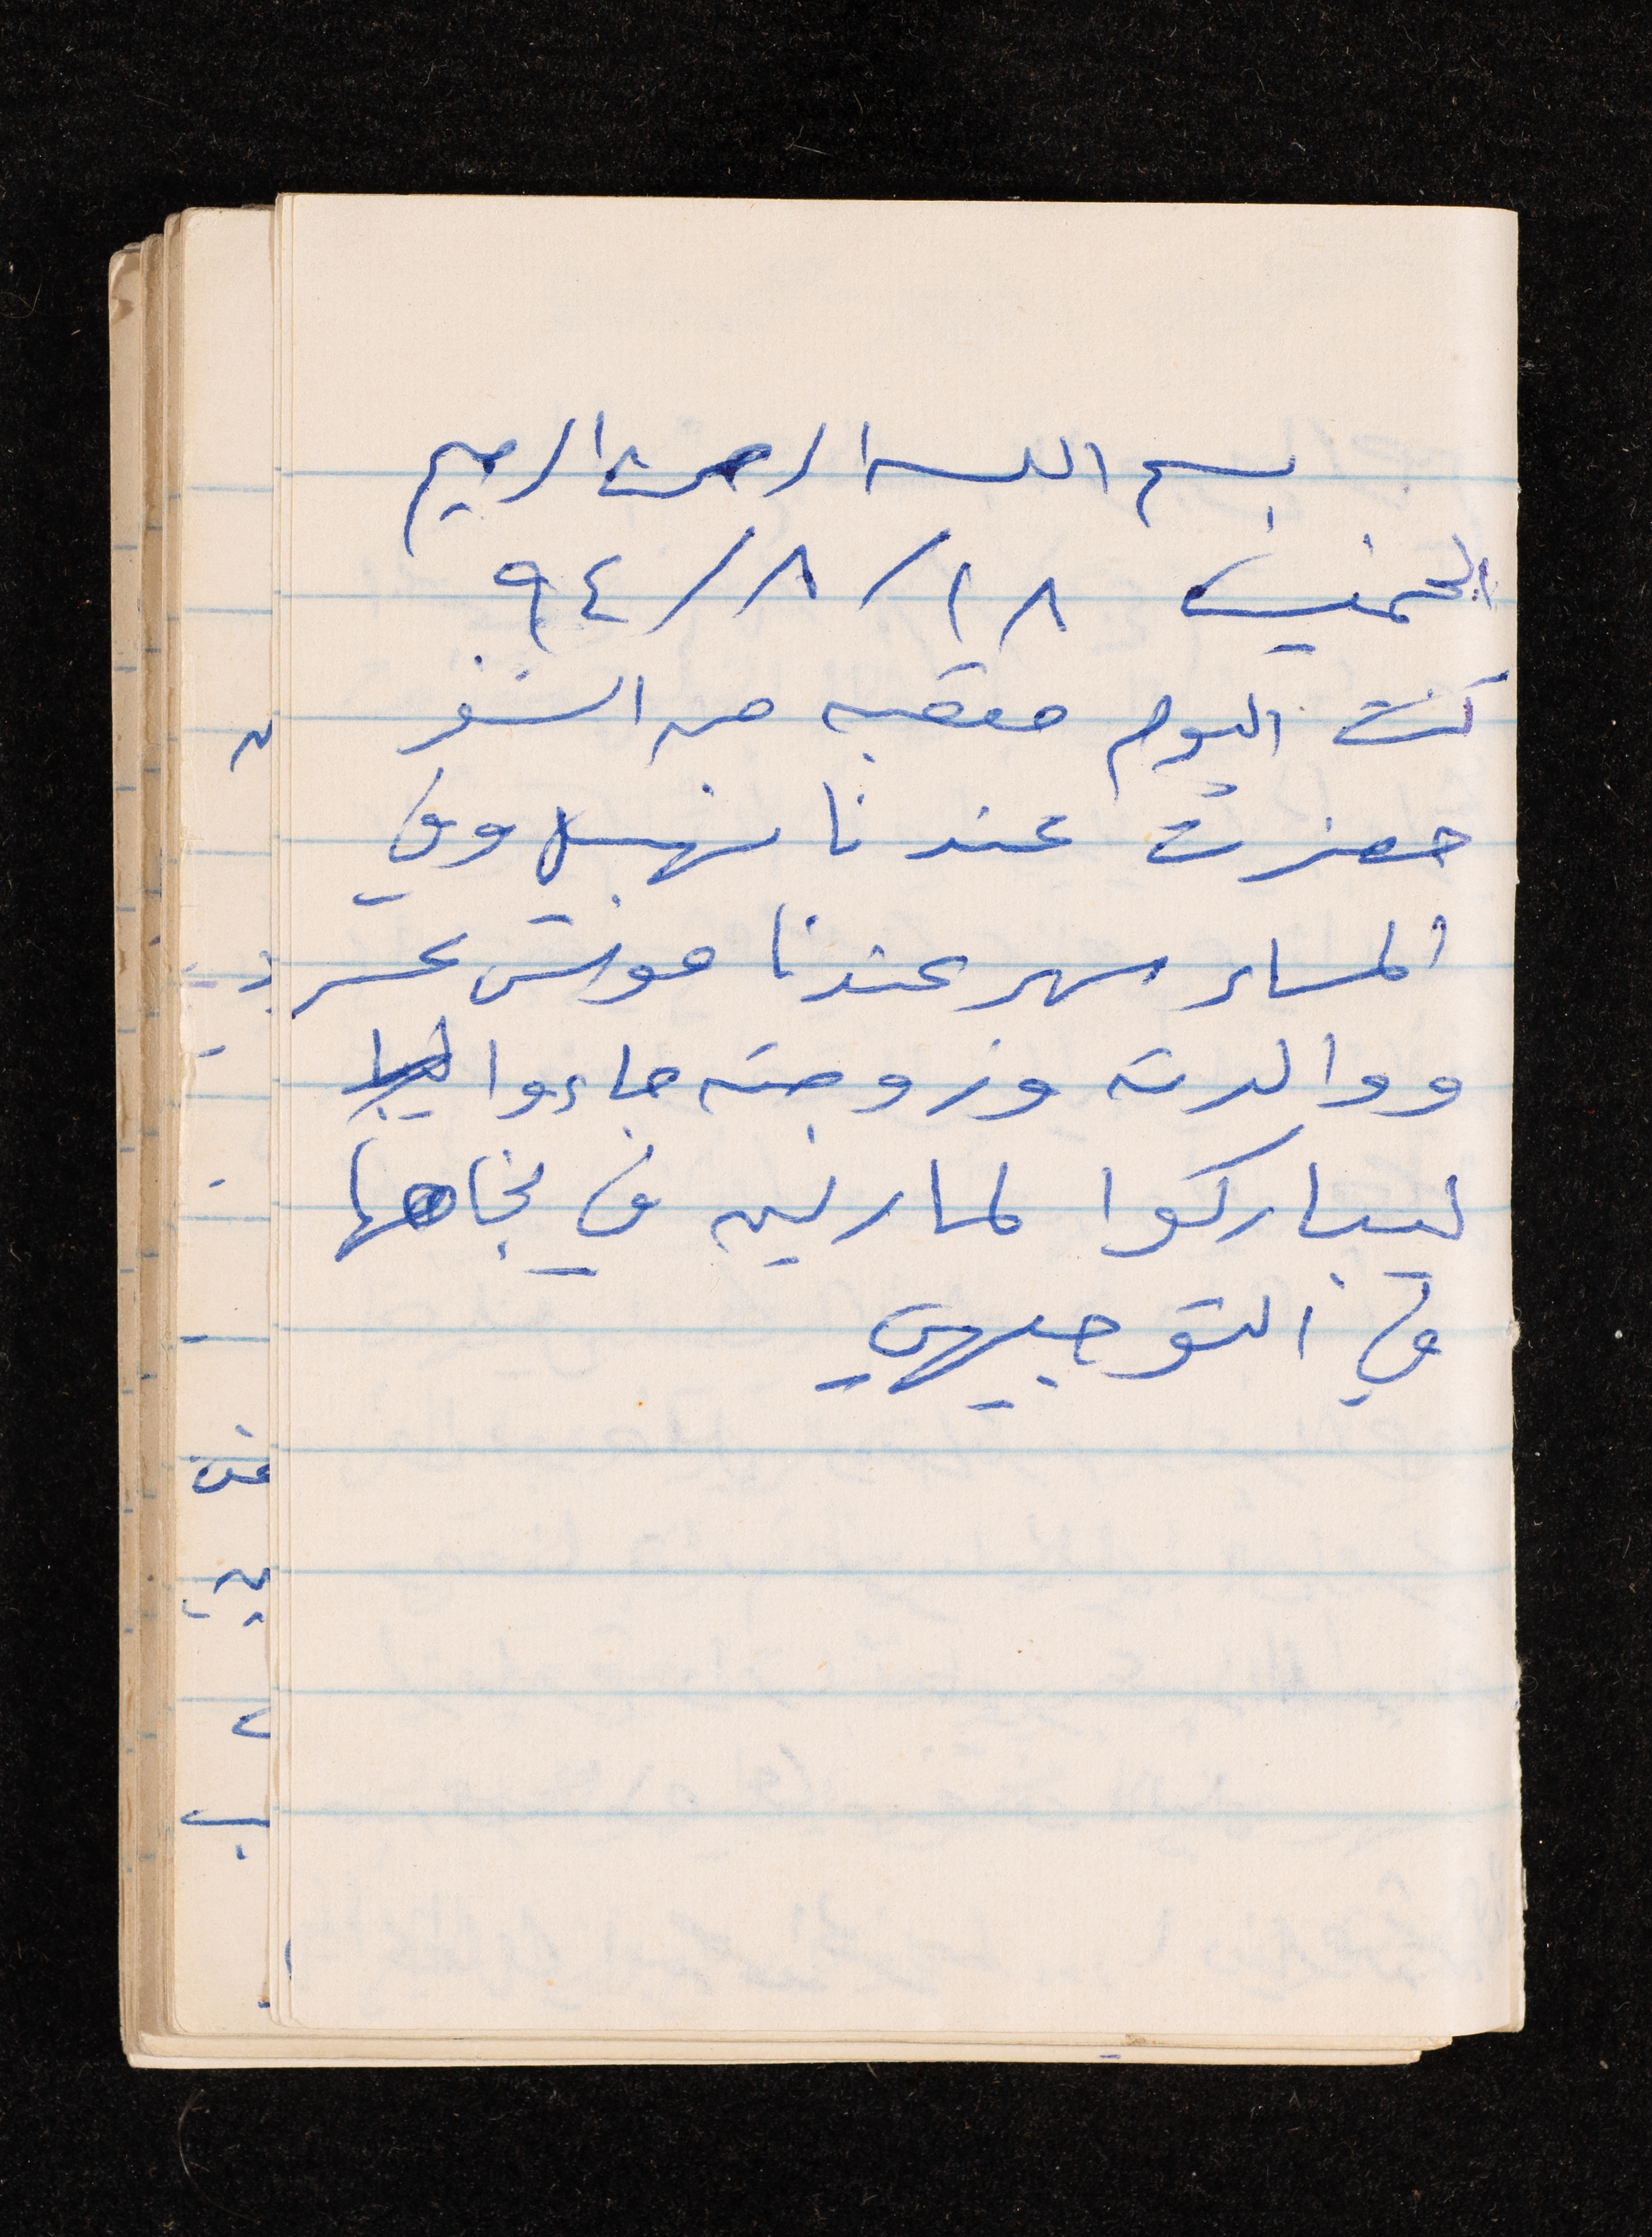 بسم الله الرحمن الرحيم
الخميس ١٨/٨/٩٤
كنت اليوم متعبه من السفر
حضرت عندنا نهيل وفي
المساء سهر عندنا مونس
ووالدته وزوجته جاءوا
ليباركوا لمارلين في نجاحها
في التوجيهي